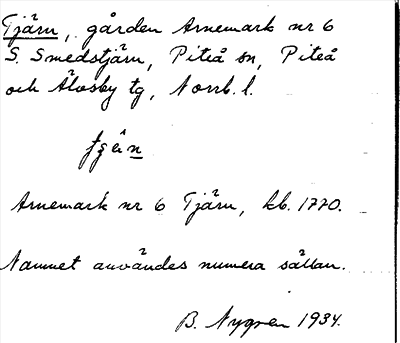 Tjärn, gården Arnemark nr 6
S. Smedstjärn, Piteå sn, Piteå
och Älvsby tg, Norrb. l.
Arnemark nr 6 Tjärn, kb. 1770.
Namnet användes numera sällan.
B. Nygren 1934.